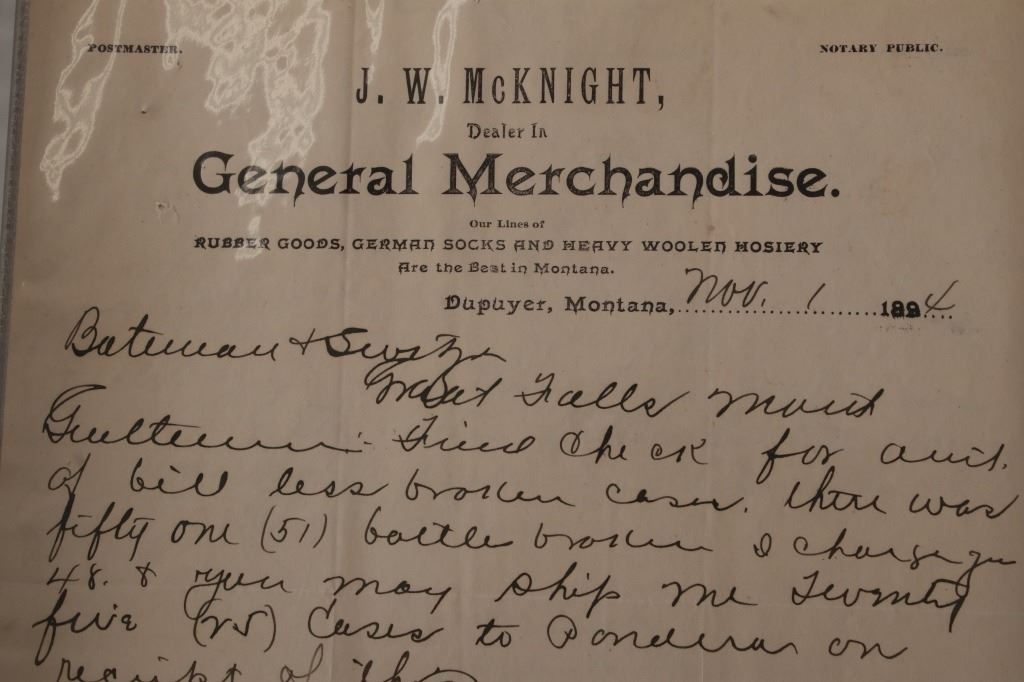 POSTMASTER.
NOTARY PUBLIC.
J. W. McKNIGHT,
Dealer In
General Merchandise.
Our Lines of
RUBBER GOODS, GERMAN SOCKS AND HEAVY WOOLEN HOSIERY
Are the Best in Montana.
Dupuyer, Montana, Nov. 1 1894
Bateman &
Great Falls Mont
Gentlemen: Find Check for amt.
of bill less broken cases. there was
fifty one (51) bottle broken I charge you
48. & you may ship me Twenty
five (25) Cases to Pondera on
receipt of